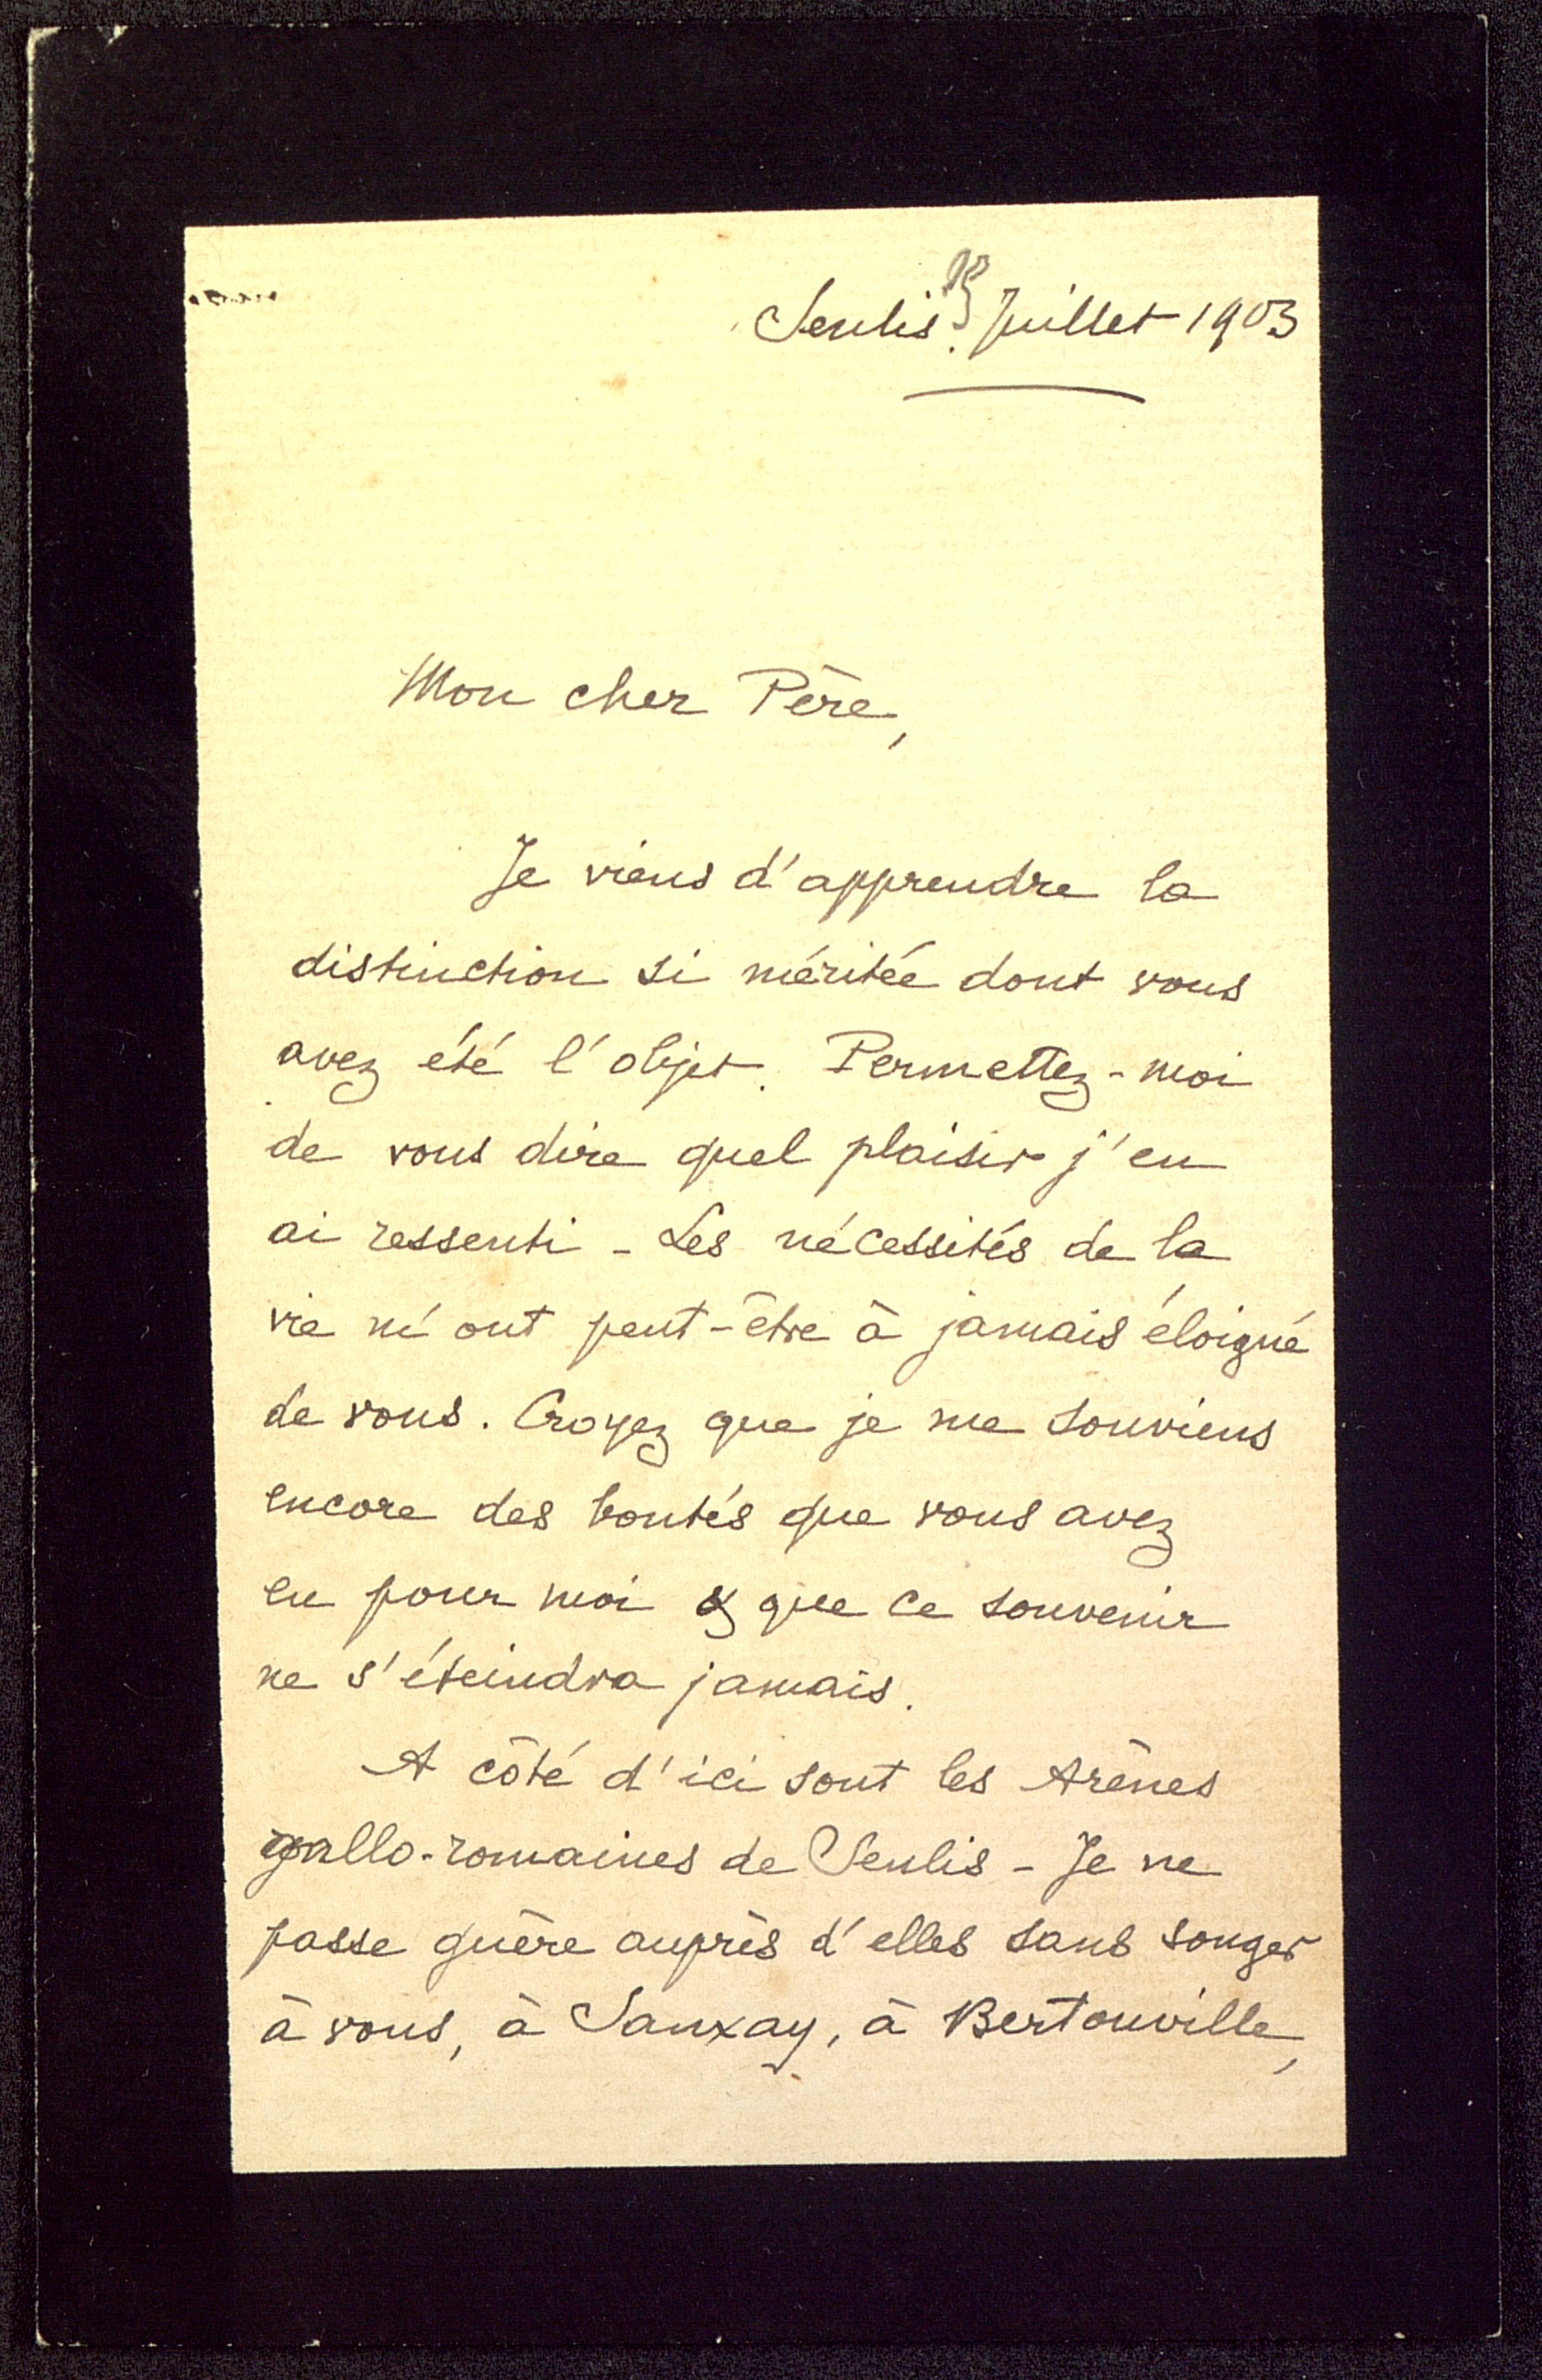 Senlis. Juillet 1903
Mon cher Père,
Je viens d'apprendre la
distinction si méritée dont vous
avez été l'objet. Permettez-moi
de vous dire quel plaisir j'en
ai ressenti - Les nécessités de la
vie m'ont peut-être à jamais éloigné
de vous. Croyez que je me souviens
encore des bontés que vous avez
eu pour moi & que ce souvenir
ne s'éteindra jamais.
A côté d'ici sont les Arènes
gallo-romaines de Senlis - Je ne
passe guère auprès d'elles sans songer
à vous, à Sanxay, à Bertouville,